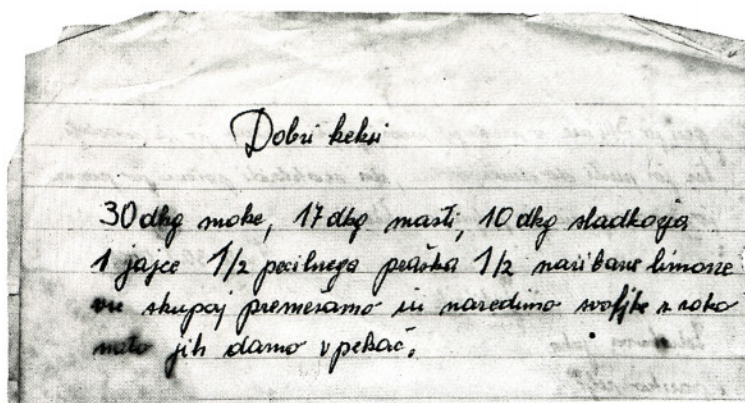 Dobri keksi
30 dkg moke, 17 dkg masti, 10 dkg sladkorja
1 jajce 1/2 pecilnega praška 1/2 naribane limone
vse skupaj premešamo in naredimo svaljke z roko
nato jih damo v pekač.